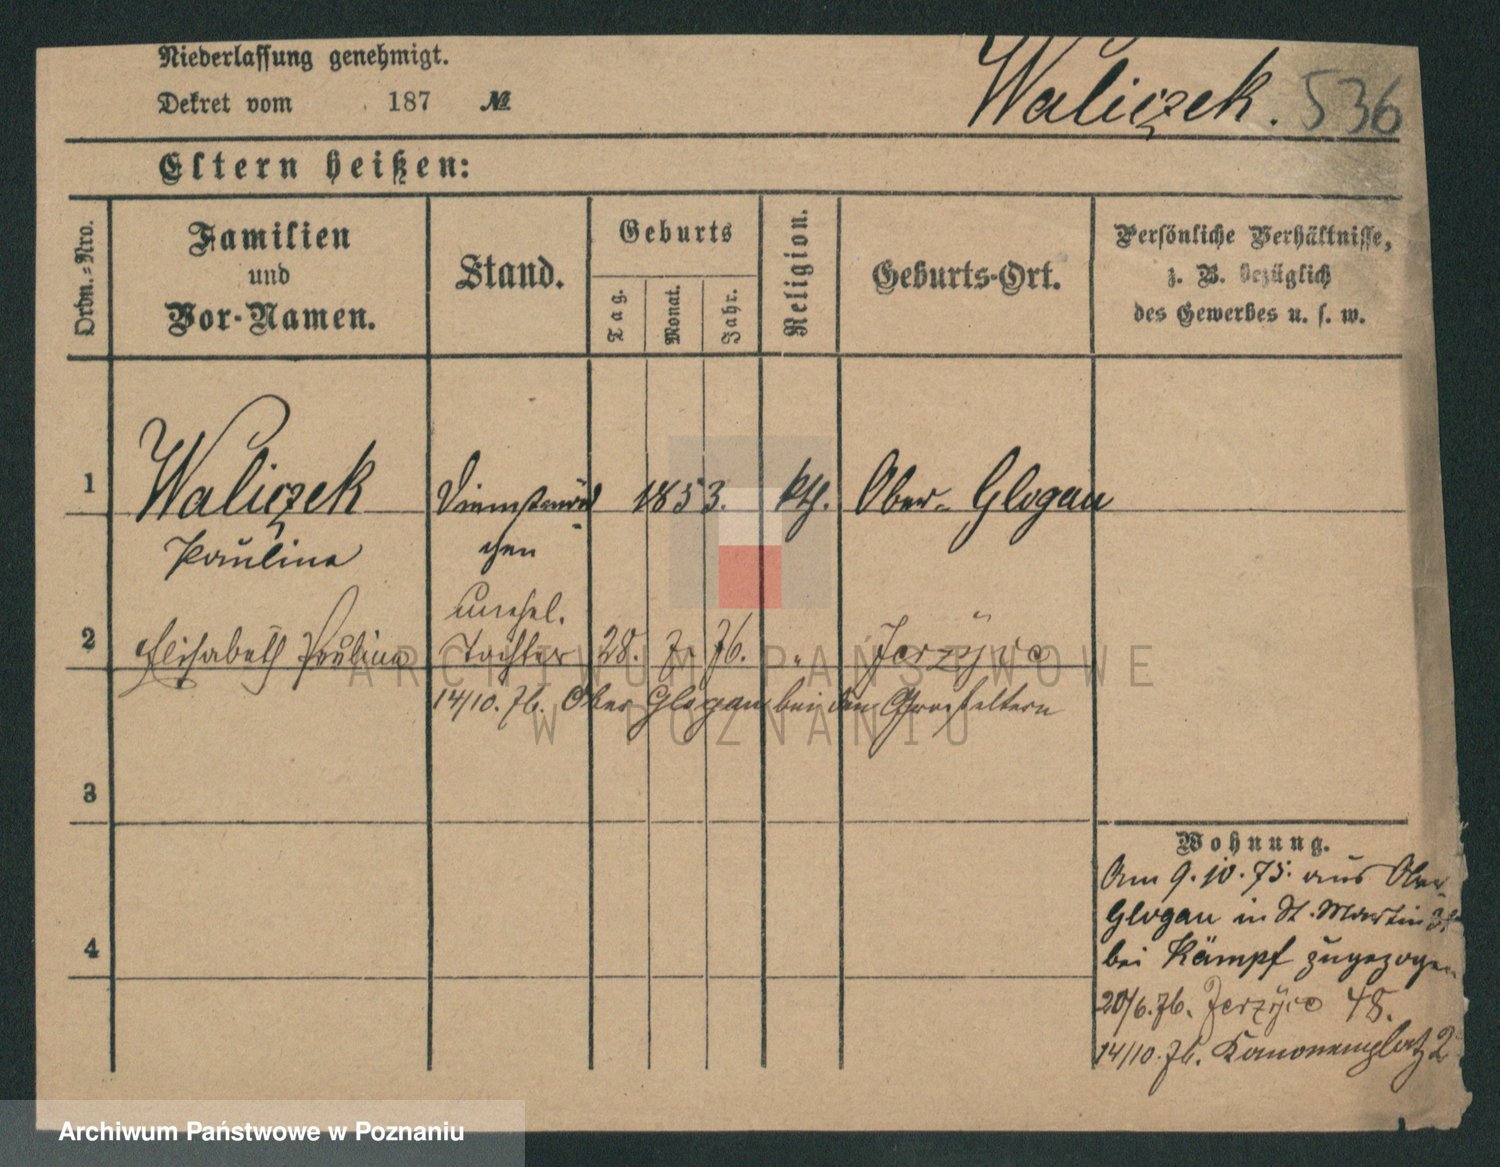 Niederlassung genehmigt.
Dekret vom 187 №
Waliczek. 536
Eltern heißen:
Ordn.-Nro.
Familien
und
Vor-Namen.
Stand.
Geburts
Tag.
Monat.
Jahr.
Religion.
Geburts-Ort.
Persönliche Verhältnisse,
z. B. bezüglich
des Gewerbes u. s. w.
1 Waliczek 1853. kth. Ober-Glogau
Paulina
2 Elisabeth Paulina
unehel.
Tochter 28. 7. 76. " Jerzyce
14/10. 76. Ober Glogau bei den Großeltern
3
4
Wohnung.
Am 9. 10. 75. aus Ober
Glogau in St. Martin
bei Kämpf zugezogen
20/6. 76. Jerzyce 48.
14/10. 76. Kanonenplatz 2
ARCHIWUM PAŃSTWOWE
W POZNANIU
Archiwum Państwowe w Poznaniu